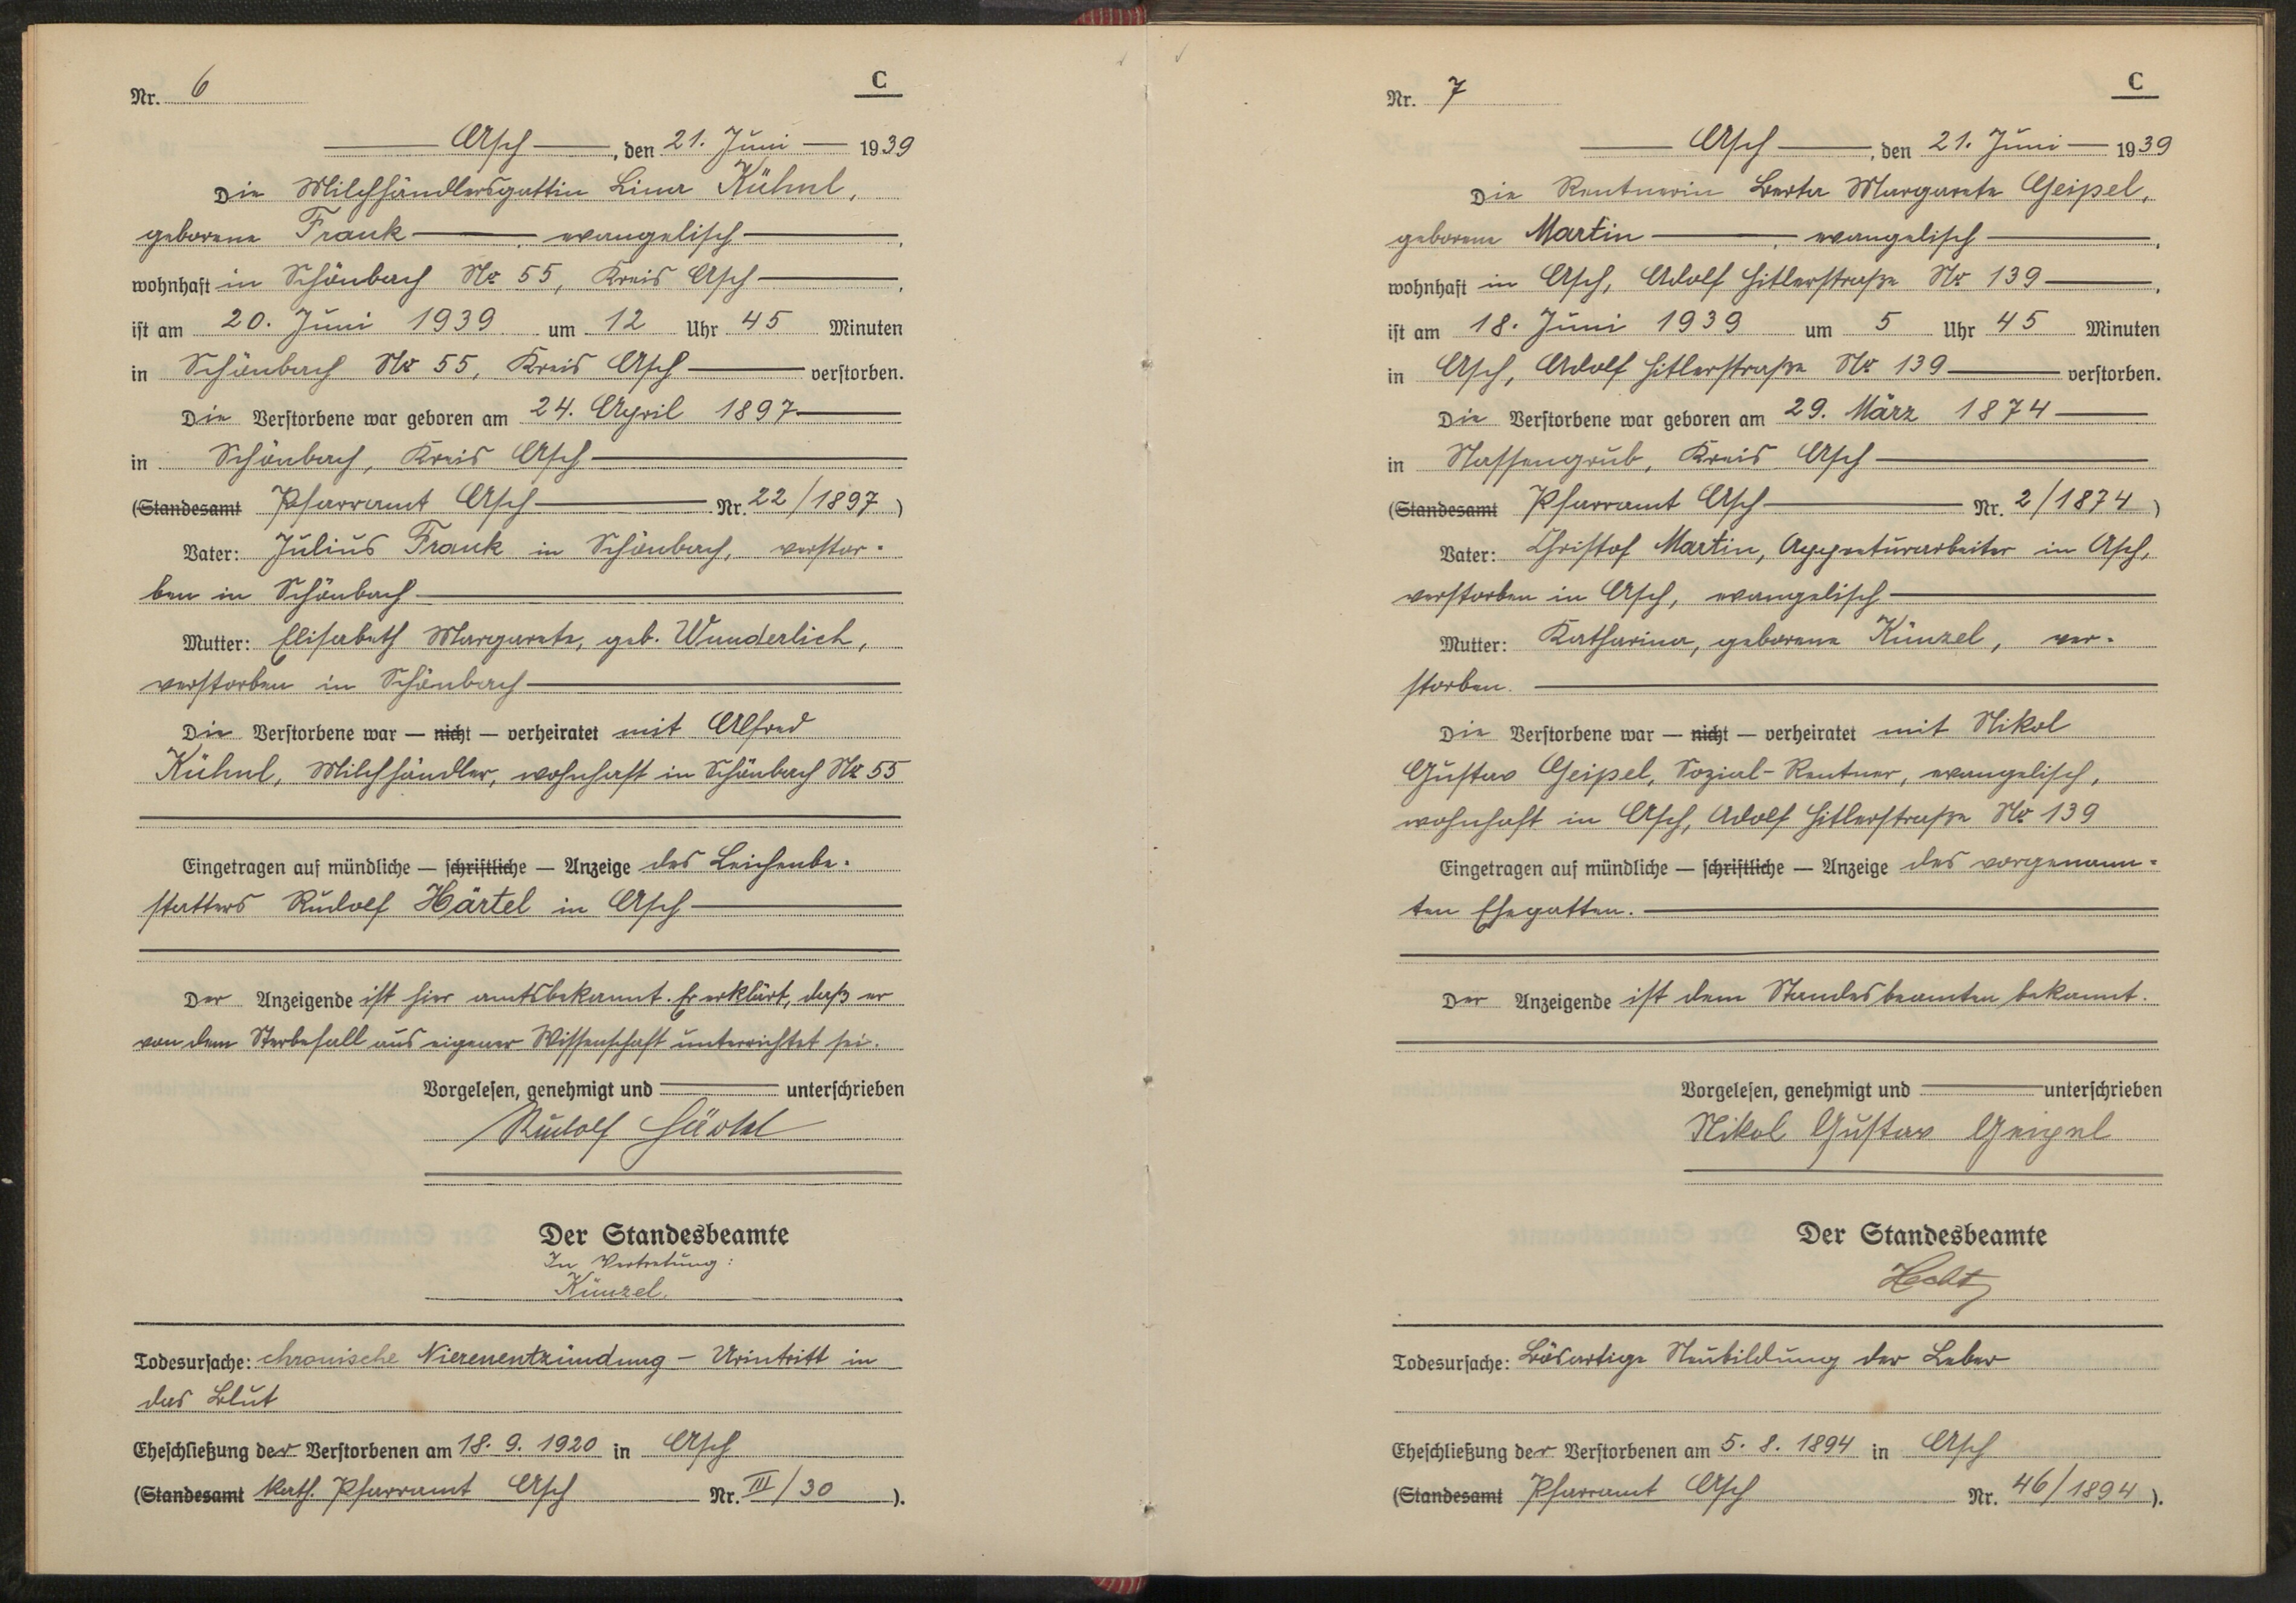 Nr. 6
C
Asch, den 21. Juni 1939
Die Milchhändlersgattin Lina Kühnl,
geborene Frank, evangelisch,
wohnhaft in Schönbach No 55, Kreis Asch,
ist am 20. Juni 1939 um 12 Uhr 45 Minuten
in Schönbach No 55, Kreis Asch verstorben.
Die Verstorbene war geboren am 24. April 1897
in Schönbach, Kreis Asch
(Standesamt Pfarramt Asch Nr. 22/1897)
Vater: Julius Frank in Schönbach, verstor-
ben in Schönbach
Mutter: Elisabeth Margareta, geb. Wunderlich,
verstorben in Schönbach
Die Verstorbene war — nicht — verheiratet mit Alfred
Kühnl, Milchhändler, wohnhaft in Schönbach No 55
Eingetragen auf mündliche — schriftliche — Anzeige des Leichenbe-
statters Rudolf Härtel in Asch
Der Anzeigende ist hier amtsbekannt. Er erklärt, daß er
von dem Sterbefall aus eigener Wissenschaft unterrichtet sei.
Vorgelesen, genehmigt und unterschrieben
Rudolf Härtel
Der Standesbeamte
In Vertretung:
Künzel.
Todesursache: chronische Nierenentzündung – Urintritt in
das Blut
Eheschließung der Verstorbenen am 18. 9. 1920 in Asch
(Standesamt kath. Pfarramt Asch Nr. III/30).
Nr. 7
C
Asch, den 21. Juni 1939
Die Rentnerin Berta Margareta Geipel,
geborene Martin, evangelisch,
wohnhaft in Asch, Adolf Hitlerstraße No 139,
ist am 18. Juni 1939 um 5 Uhr 45 Minuten
in Asch, Adolf Hitlerstraße No 139 verstorben.
Die Verstorbene war geboren am 29. März 1874
in Nassengrub, Kreis Asch
(Standesamt Pfarramt Asch Nr. 2/1874)
Vater: Christof Martin, Appreturarbeiter in Asch,
verstorben in Asch, evangelisch
Mutter: Katharina, geborene Künzel, ver-
storben.
Die Verstorbene war — nicht — verheiratet mit Nikol
Gustav Geipel, Sozial-Rentner, evangelisch,
wohnhaft in Asch, Adolf Hitlerstraße No 139
Eingetragen auf mündliche — schriftliche — Anzeige des vorgenann-
ten Ehegatten.
Der Anzeigende ist dem Standesbeamten bekannt.
Vorgelesen, genehmigt und unterschrieben
Nikol Gustav Geipel
Der Standesbeamte
Todesursache: Bösartige Neubildung der Leber
Eheschließung der Verstorbenen am 5. 8. 1894 in Asch
(Standesamt Pfarramt Asch Nr. 46/1894).